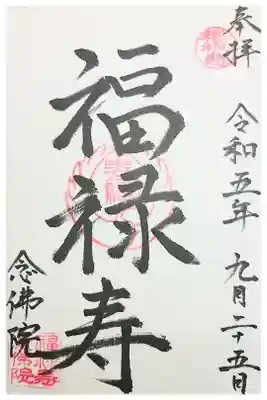 奉拝
令和五年 九月二十五日
福禄寿
念佛院